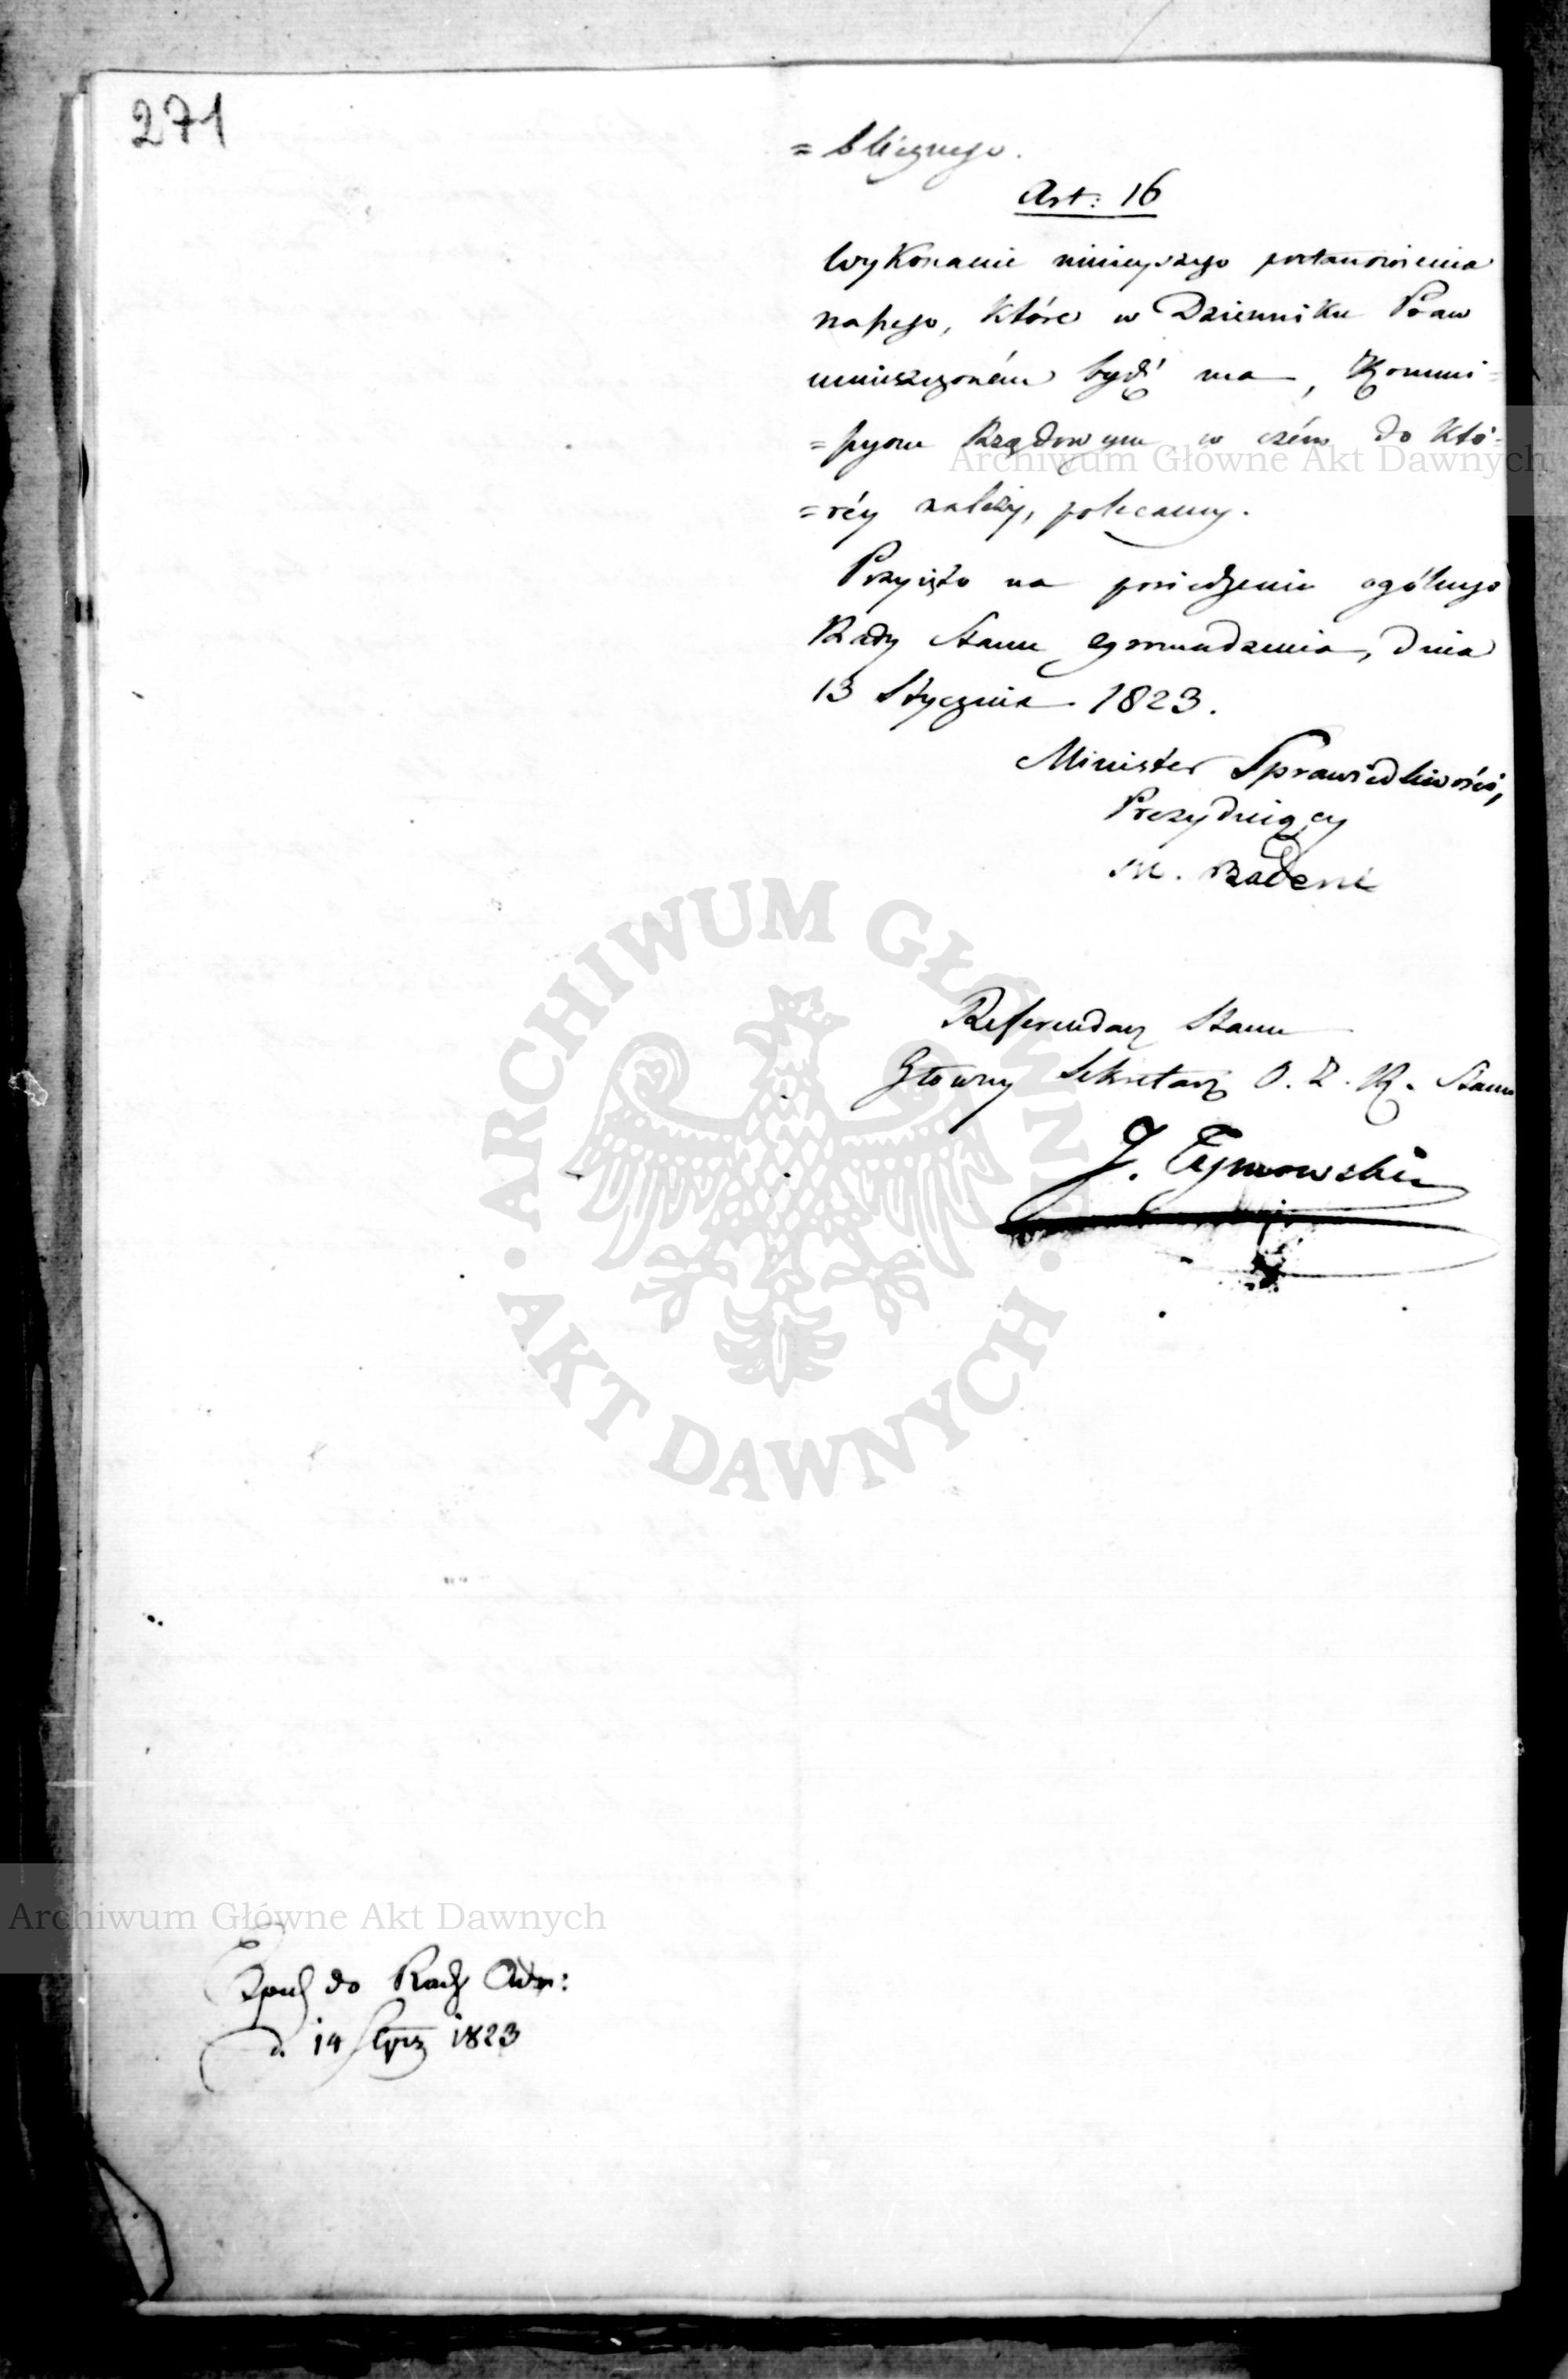 271
=blicznego.
Art: 16
Wykonanie ninieyszego postanowienia
naszego, które w Dzienniku Praw
umieszczoném bydź ma, Kommi=
=ssyom Rządowym w czém do któ=
=réy należy, polecamy.
Przyięto na posiedzeniu ogólnego
Rady Stanu Zgromadzenia, dnia
13 Stycznia 1823.
Minister Sprawiedliwości,
Prezyduiący
M. Badeni
Referendarz Stanu
Główny Sekretarz O. Z. R. Stanu
J. Tymowski
do Rady Adm:
d. 14 Stycz 1823
Archiwum Główne Akt Dawnych
ARCHIWUM GŁÓWNE • AKT DAWNYCH •
Archiwum Główne Akt Dawnych